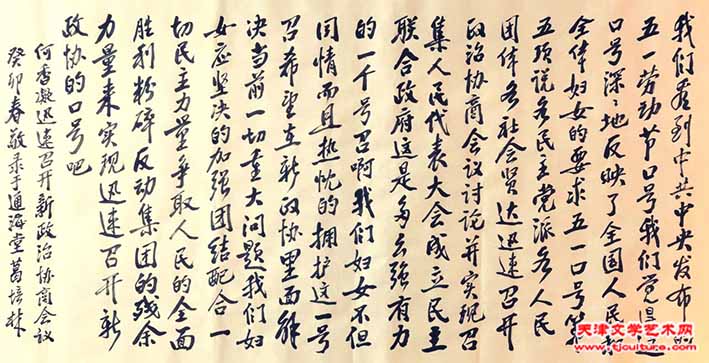 我们看到中共中央发布的
五一劳动节口号我们觉得这
口号深々地反映了全国人民和
全体妇女的要求五一口号第
五项说各民主党派各人民
团体各社会贤达迅速召开
政治协商会议讨论并实现召
集人民代表大会成立民主
联合政府这是多么强有力
的一个号召啊我们妇女不但
同情而且热忱的拥护这一号
召希望在新政协里面解
决当前一切重大问题我们妇
女应坚决的加强团结配合一
切民主力量争取人民的全面
胜利粉碎反动集团的残余
力量来实现迅速召开新
政协的口号吧
何香凝迅速召开新政治协商会议
癸卯春敬录于通海堂葛培林
天津文学艺术网
www.tjculture.com